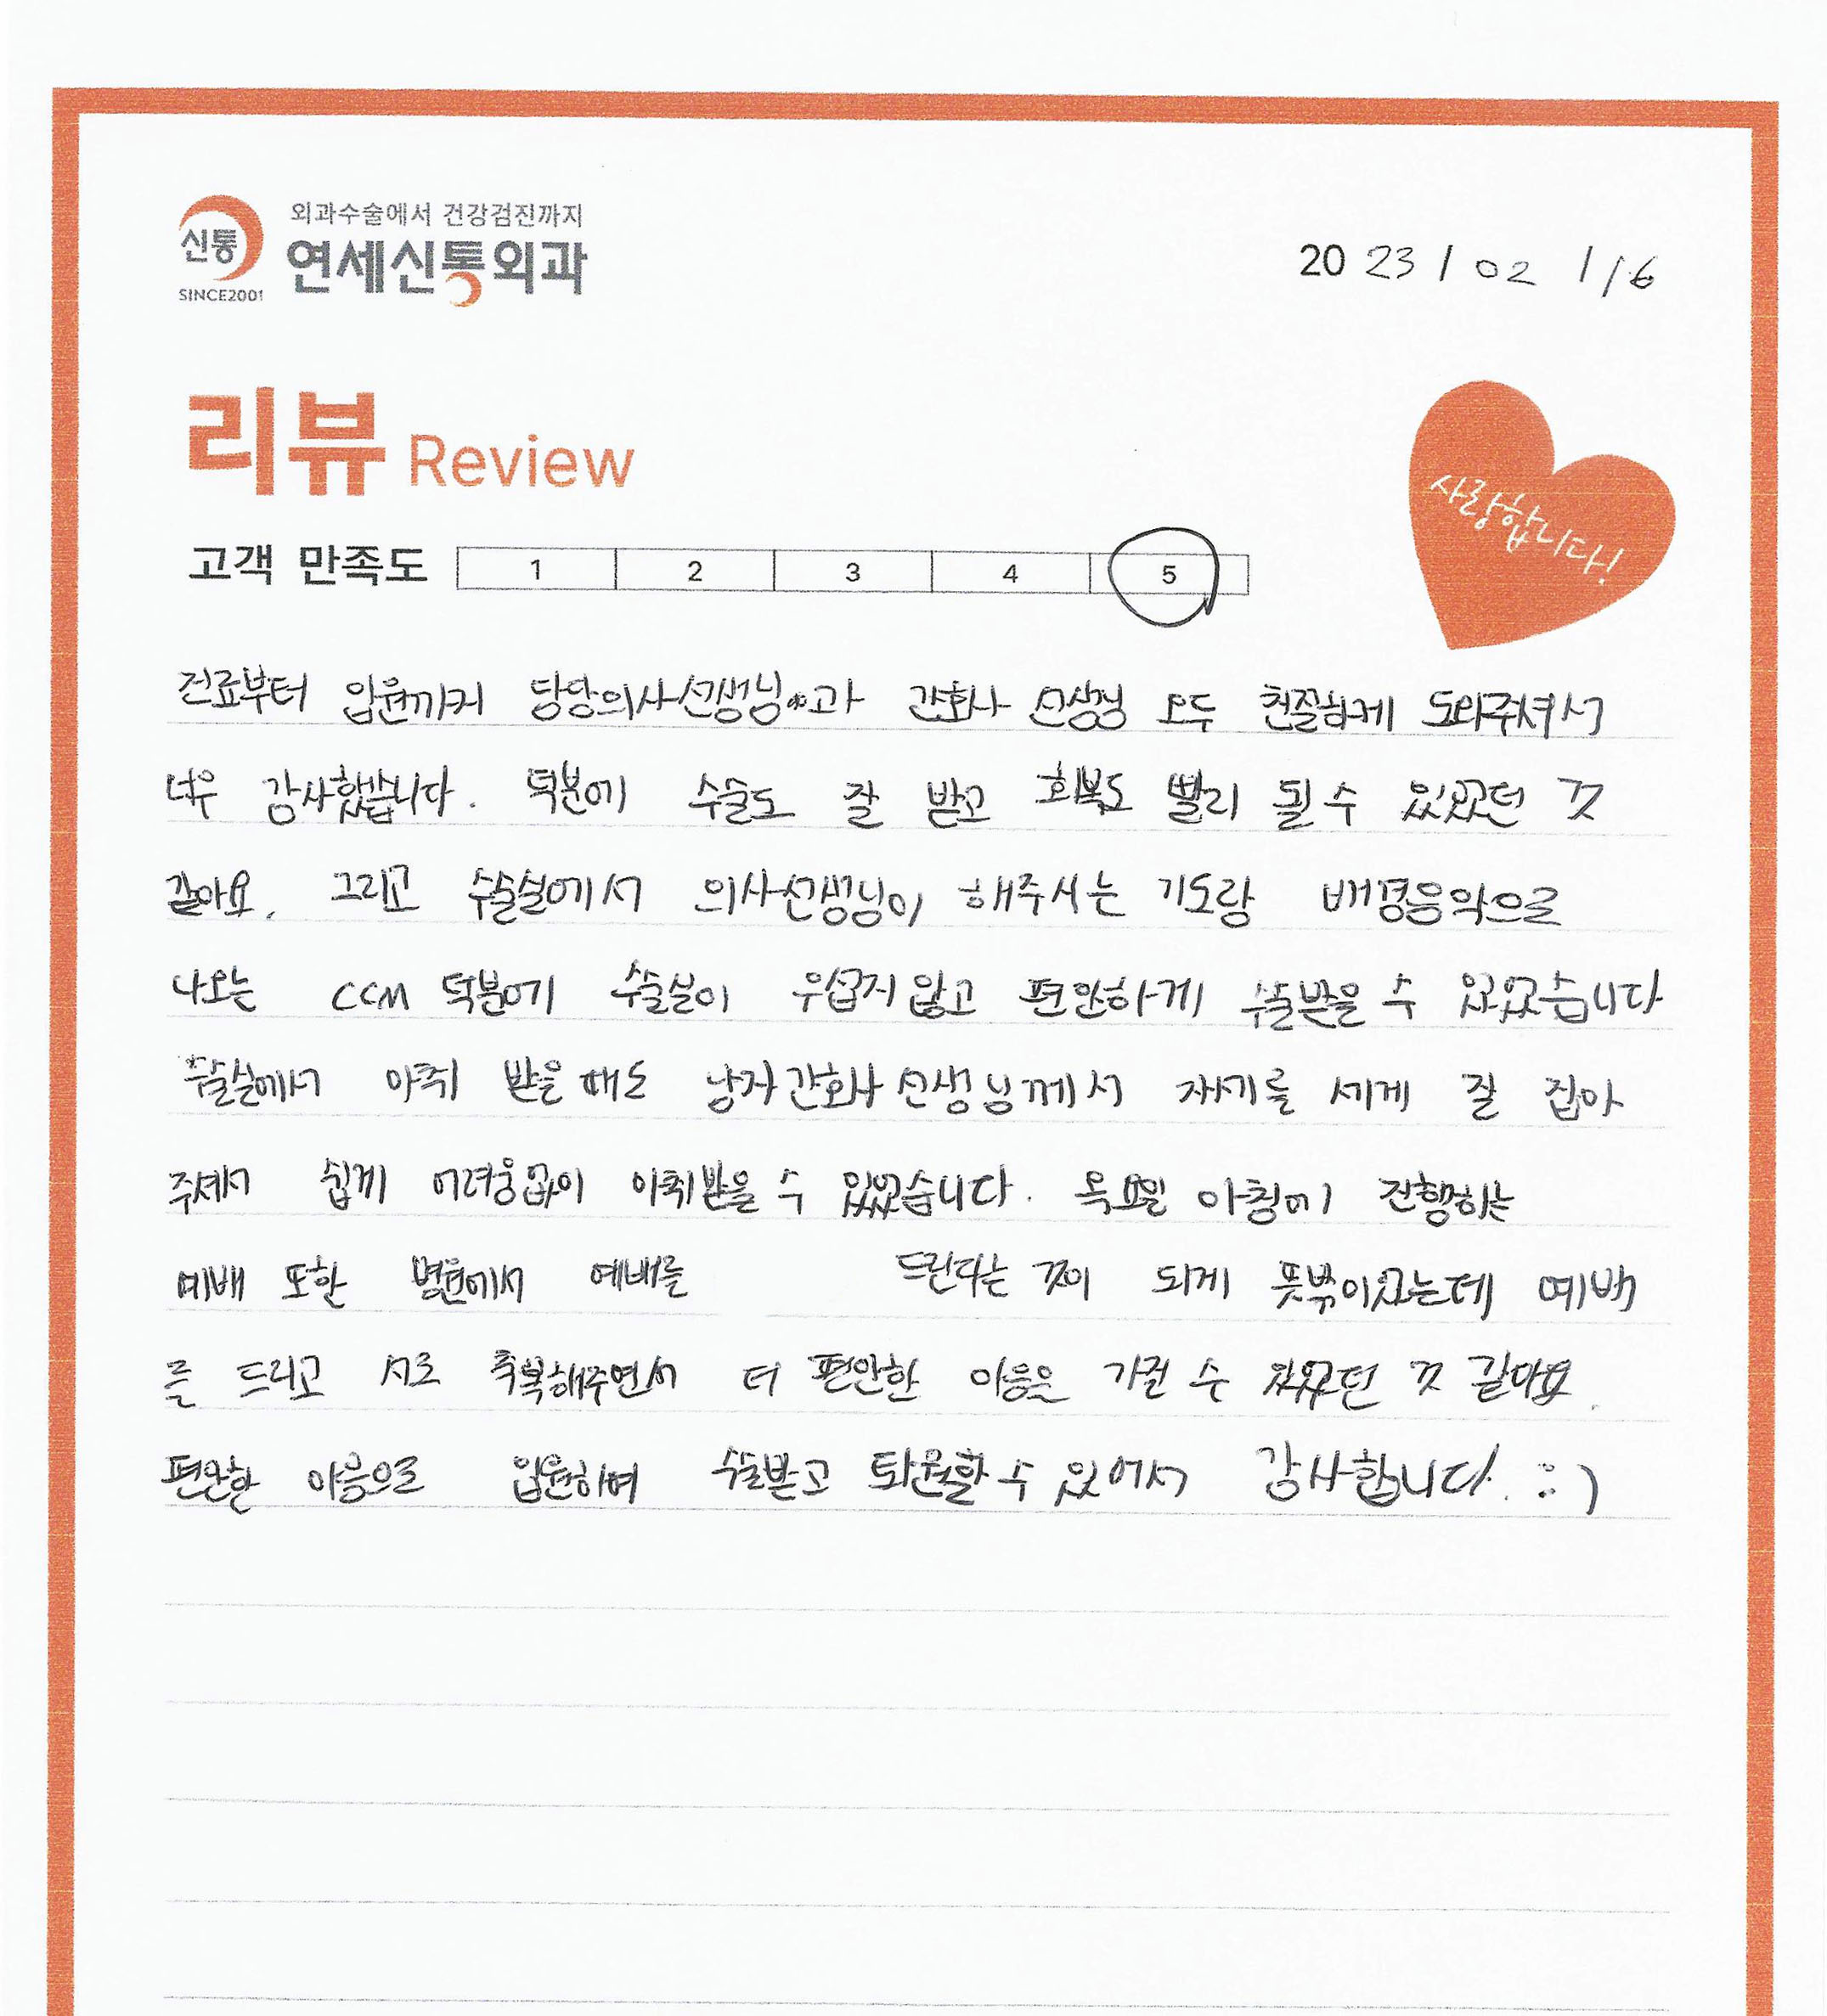 외과수술에서 건강검진까지
신통 연세신통외과
SINCE2001
2023 / 02 / 16
리뷰 Review
사랑합니다!
고객 만족도 1 2 3 4 5
진료부터 입원까지 담당의사선생님과 간호사 선생님 모두 친절하게 도와주셔서
너무 감사했습니다. 덕분에 수술도 잘 받고 회복도 빨리 될 수 있었던 것
같아요. 그리고 수술실에서 의사선생님이 해주시는 기도랑 배경음악으로
나오는 CCM 덕분에 수술실이 무섭지 않고 편안하게 수술받을 수 있었습니다
수술실에서 마취 받을 때도 남자간호사 선생님께서 자세를 세게 잘 잡아
주셔서 쉽게 어려움없이 마취받을 수 있었습니다. 목요일 아침에 진행하는
예배 또한 병원에서 예배를 드린다는 것이 되게 뜻밖이었는데 예배
를 드리고 서로 축복해주면서 더 편안한 마음을 가질 수 있었던 것 같아요.
편안한 마음으로 입원하며 수술받고 퇴원할 수 있어서 감사합니다. :)